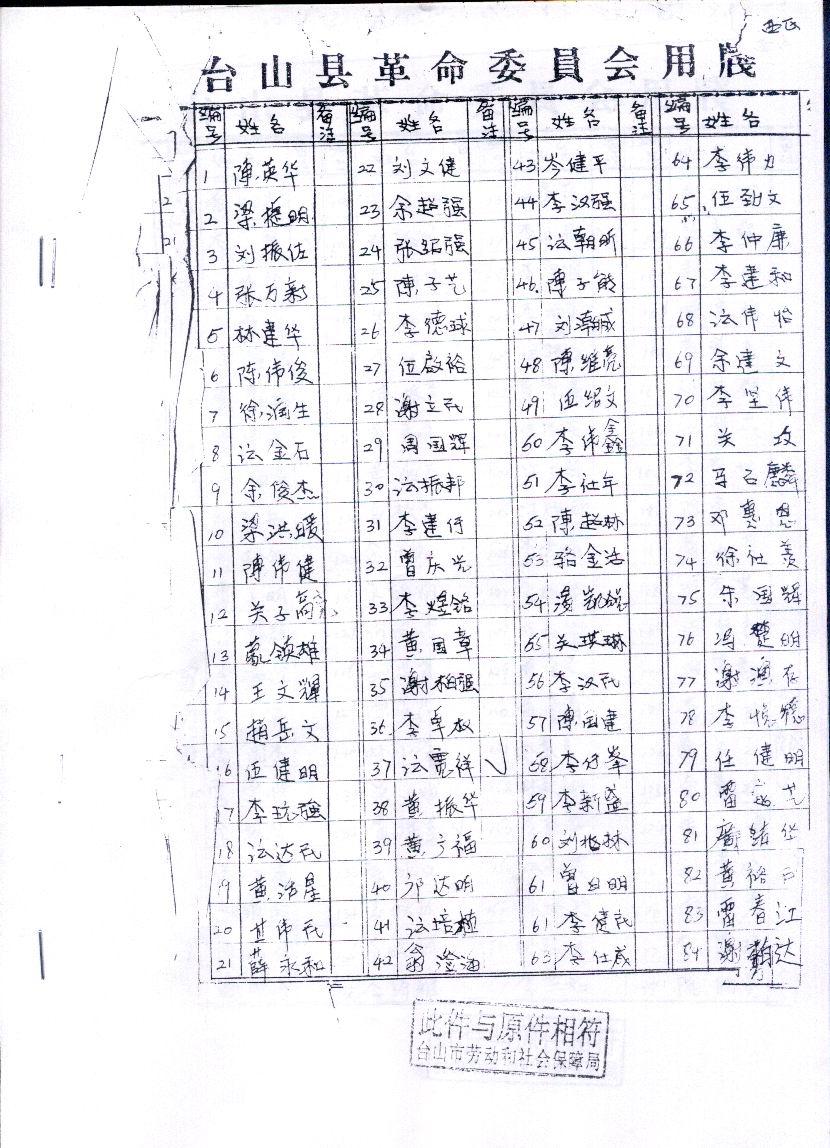 台山县革命委員会用牋
编号 姓名 备注 编号 姓名 备注 编号 姓名 备注 编号 姓名
1 陳英华 22 刘文健 43 岑健平 64 李伟力
2 梁捷明 23 余超强 44 李汉强 65 伍劲文
3 刘振佐 24 张绍强 45 沄朝昕 66 李仲廉
4 张万新 25 陳子艺 46 陳子能 67 李建和
5 林建华 26 李德球 47 刘潮斌 68 沄伟怡
6 陈伟俊 27 伍啟裕 48 陳维亮 69 余建文
7 徐润生 28 谢立民 49 伍绍文 70 李坚伟
8 沄金石 29 周国辉 50 李伟鑫 71 关
9 余俊杰 30 沄振邦 51 李社年 72 马石麟
10 梁洪暖 31 李建行 52 陳超林 73 邓惠恩
11 陳伟健 32 曾庆光 53 骆金浩 74 徐社羡
12 关子 33 李煜铭 54 凯 75 朱国辉
13 领雄 34 黄国章 55 关瑛琳 76 冯楚明
14 王文輝 35 谢柏强 56 李汉民 77 谢源
15 趙岳文 36 李卓权 57 陳国建 78 李德
16 伍健明 37 沄霓祥 58 李仔峯 79 任健明
17 李玩強 38 黄振华 59 李新盛 80 雷艺
18 沄达民 39 黄广福 60 刘兆林 81 华
19 黄活星 40 邝达明 61 曾日明 82 黄裕
20 甘伟民 41 沄培植 61 李健民 83 雷春江
21 薛永和 42 翁澄油 63 李仕威 84 谢柏达
此件与原件相符
台山市劳动和社会保障局